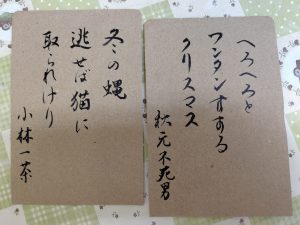 へろへろと
ワンタンすする
クリスマス
秋元不死男
冬の蝿
逃せば猫に
取られけり
小林一茶